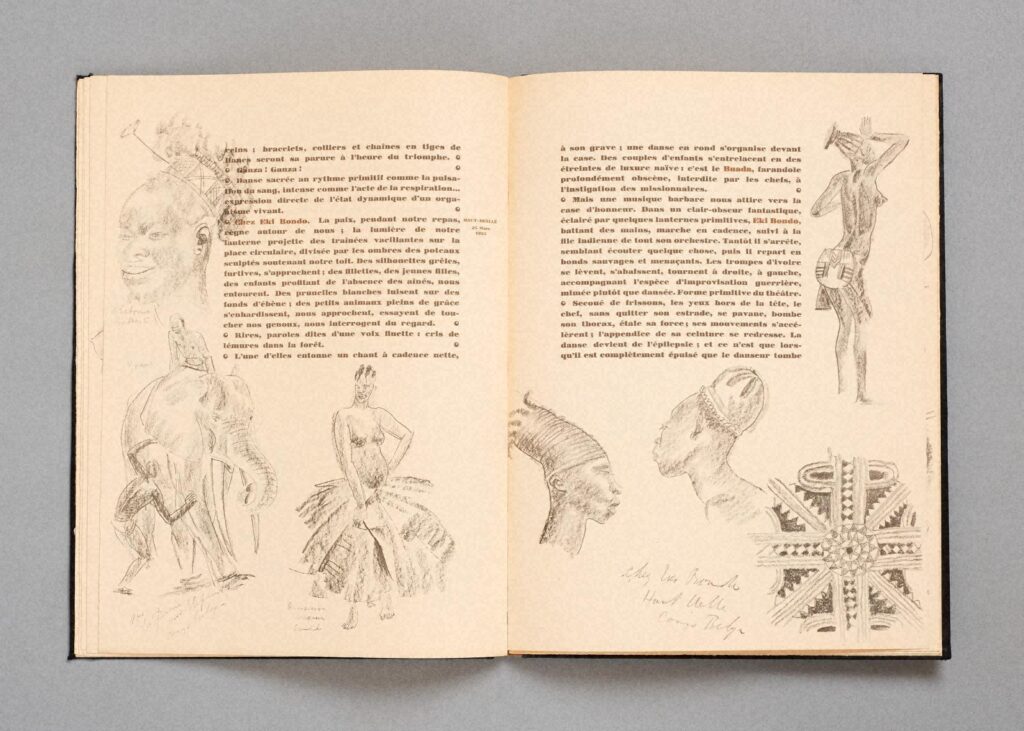 reins ; bracelets, colliers et chaînes en tiges de
lianes seront sa parure à l'heure du triomphe.
Ganza ! Ganza !
Danse sacrée au rythme primitif comme la pulsa-
tion du sang, intense comme l'acte de la respiration...
expression directe de l'état dynamique d'un orga-
nisme vivant.
Chez Eki Bondo. La paix, pendant notre repas,
règne autour de nous ; la lumière de notre
lanterne projette des traînées vacillantes sur la
place circulaire, divisée par les ombres des poteaux
sculptés soutenant notre toit. Des silhouettes grêles,
furtives, s'approchent ; des fillettes, des jeunes filles,
des enfants profitant de l'absence des aînés, nous
entourent. Des prunelles blanches luisent sur des
fonds d'ébène ; des petits animaux pleins de grâce
s'enhardissent, nous approchent, essayent de tou-
cher nos genoux, nous interrogent du regard.
Rires, paroles dites d'une voix flutée ; cris de
lémures dans la forêt.
L'une d'elles entonne un chant à cadence nette,
HAUT-UELLÉ
25 Mars
1925
à son grave ; une danse en rond s'organise devant
la case. Des couples d'enfants s'entrelacent en des
étreintes de luxure naïve : c'est le Buadu, farandole
profondément obscène, interdite par les chefs, à
l'instigation des missionnaires.
Mais une musique barbare nous attire vers la
case d'honneur. Dans un clair-obscur fantastique,
éclairé par quelques lanternes primitives, Eki Bondo,
battant des mains, marche en cadence, suivi à la
file indienne de tout son orchestre. Tantôt il s'arrête,
semblant écouter quelque chose, puis il repart en
bonds sauvages et menaçants. Les trompes d'ivoire
se lèvent, s'abaissent, tournent à droite, à gauche,
accompagnant l'espèce d'improvisation guerrière,
mimée plutôt que dansée. Forme primitive du théâtre.
Secoué de frissons, les yeux hors de la tête, le
chef, sans quitter son estrade, se pavane, bombe
son thorax, étale sa force ; ses mouvements s'accé-
lèrent ; l'appendice de sa ceinture se redresse. La
danse devient de l'épilepsie ; et ce n'est que lors-
qu'il est complètement épuisé que le danseur tombe
Chez
Haut Uelle
Congo Belge